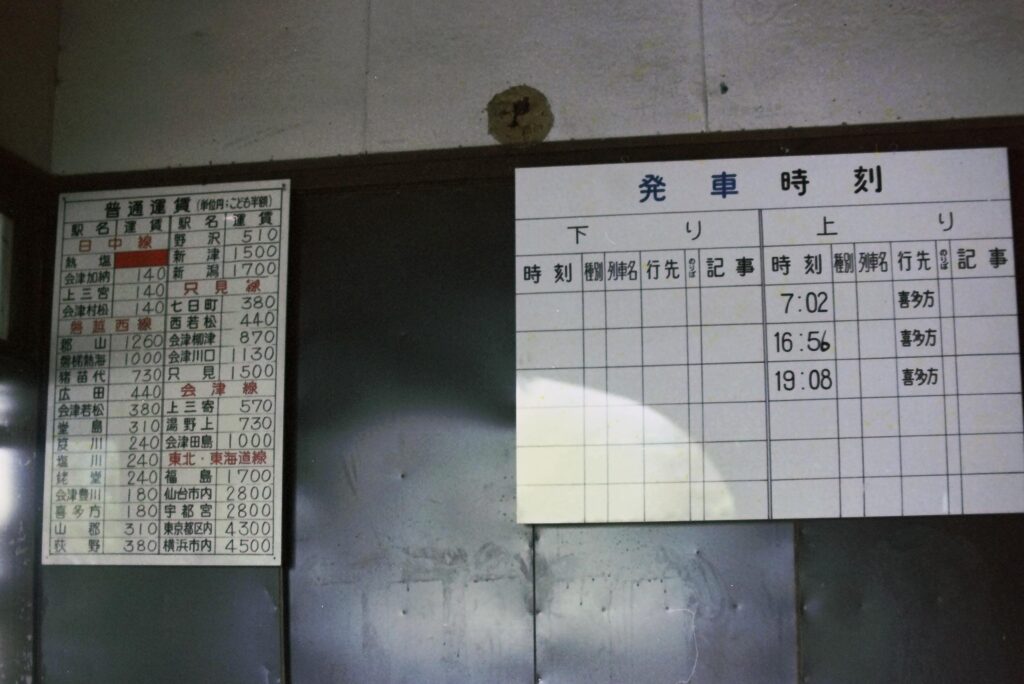 普通運賃 (単位円:こども半額)
駅名 運賃 駅名 運賃
日中線
熱塩
会津加納 140
上三宮 140
会津村松 140
磐越西線
郡山 1260
磐梯熱海 1000
猪苗代 730
広田 440
会津若松 380
堂島 310
笈川 240
塩川 240
姥堂 240
会津豊川 180
喜多方 180
山都 310
荻野 380
野沢 510
新津 1500
新潟 1700
只見線
七日町 380
西若松 440
会津柳津 870
会津川口 1130
只見 1500
会津線
上三寄 570
湯野上 730
会津田島 1000
東北・東海道線
福島 1700
仙台市内 2800
宇都宮 2800
東京都区内 4300
横浜市内 4500
発車時刻
下り 上り
時刻 種別 列車名 行先 のりば 記事 時刻 種別 列車名 行先 のりば 記事
7:02 喜多方
16:56 喜多方
19:08 喜多方